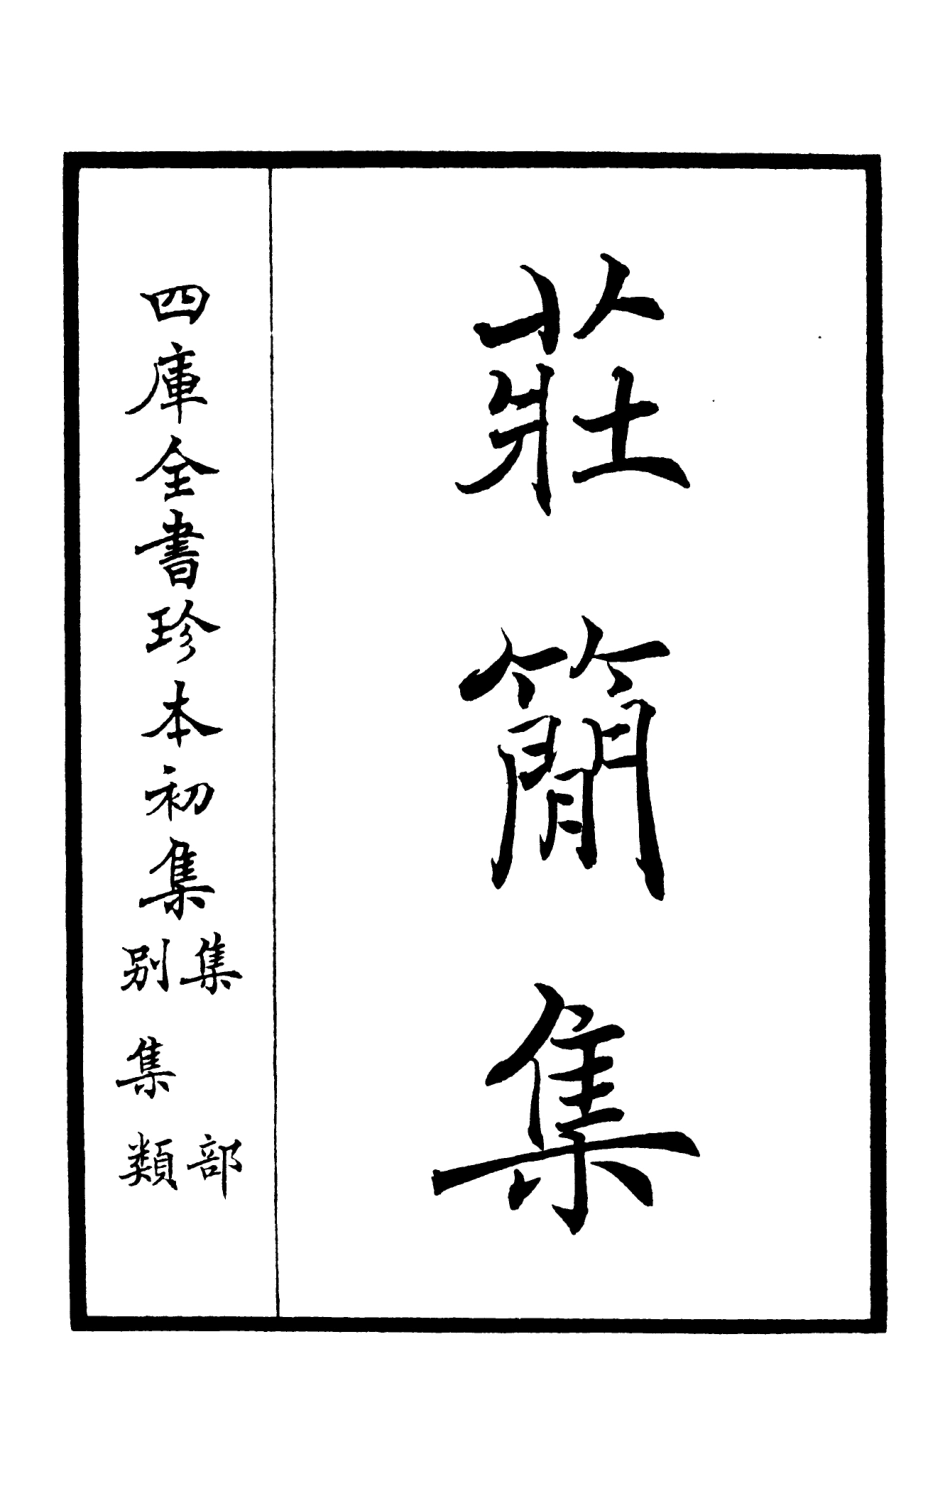 莊簡集
四庫全書珍本初集
集部
別集類